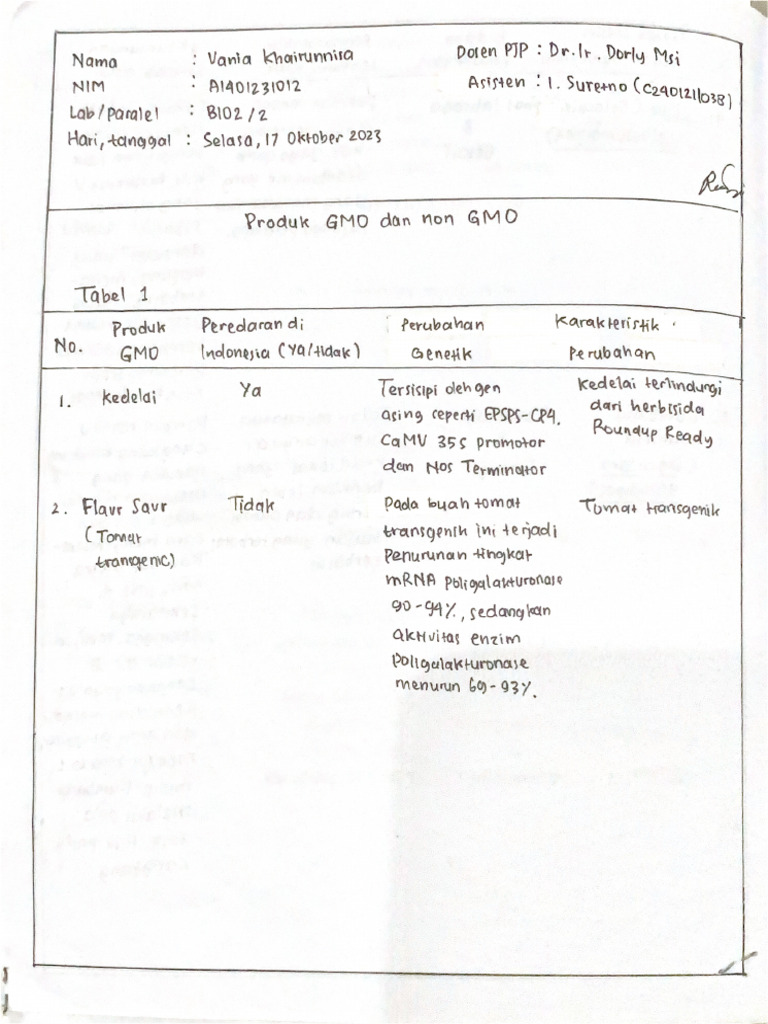 Nama : Vania Khairunnisa
Dosen PJP : Dr. Ir. Dorly Msi
NIM : A1401231012
Asisten : 1. Suretno (C2401211038)
Lab/Paralel : B102/2
Hari, tanggal : Selasa, 17 Oktober 2023
Produk GMO dan non GMO
Tabel 1
No. Produk GMO
Peredaran di
Indonesia (Ya/tidak)
Perubahan
Genetik
Karakteristik
Perubahan
1. Kedelai
Ya
Tersisipi oleh gen
asing seperti EPSPS-CP4,
CaMV 35s promotor
dam Nos Terminator
Kedelai terlindungi
dari herbisida
Roundup Ready
2. Flavr Savr
(Tomat
transgenic)
Tidak
Pada buah tomat
transgenik ini terjadi
penurunan tingkat
mRNA poligalakturonase
90-94%, sedangkan
aktivitas enzim
poligalakturonase
menurun 69-93%.
Tomat transgenik